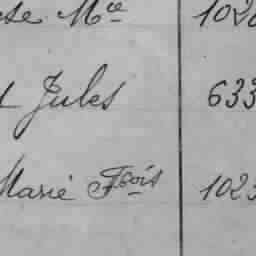 Mce 102
Jules 633
Marie Fcois 102